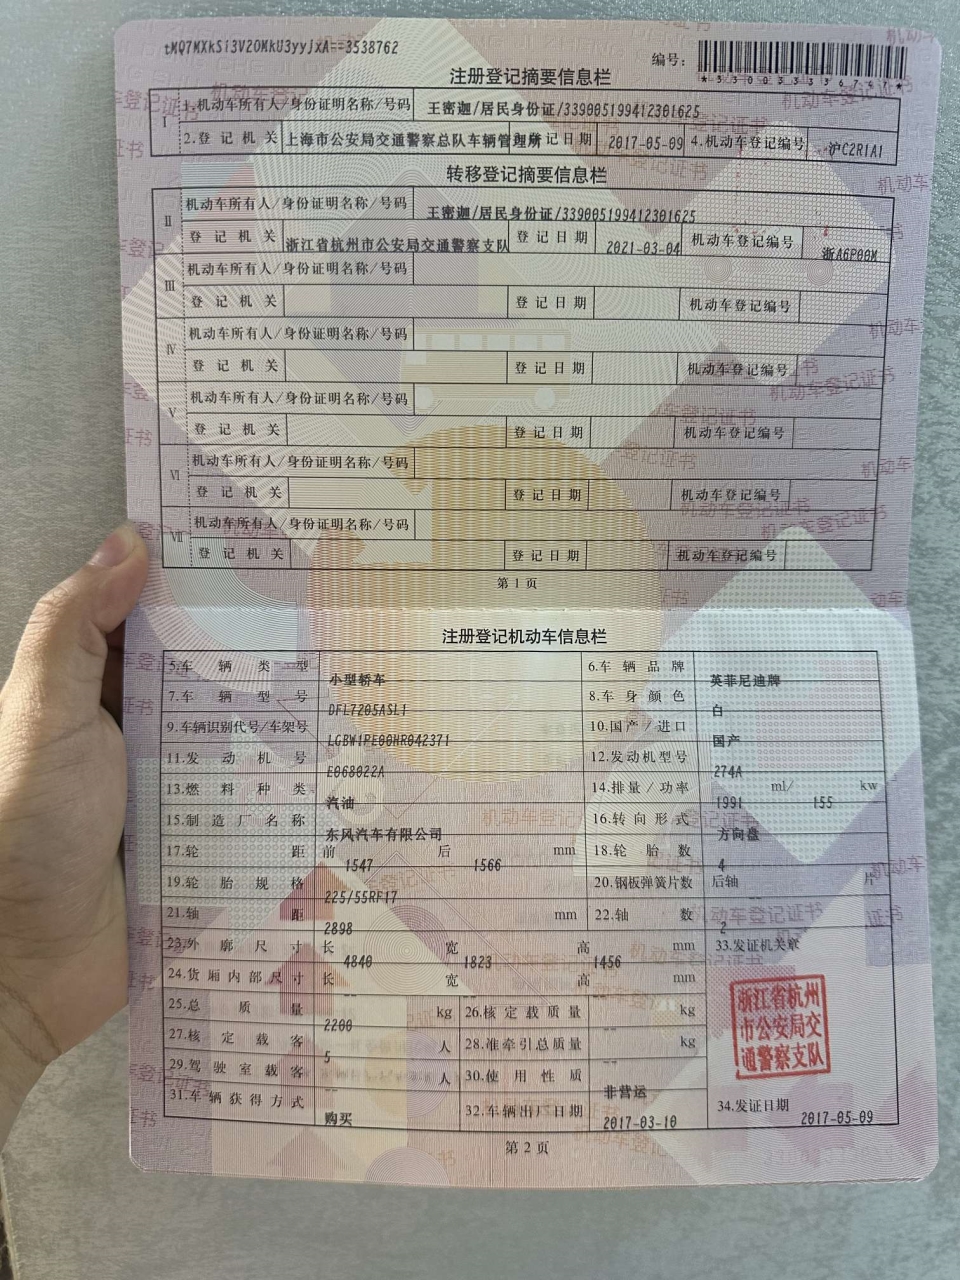 tMQ7MXkSi3V2OMkU3yyJxA==3538762
编号:
注册登记摘要信息栏
I 1.机动车所有人/身份证明名称/号码 王密迦/居民身份证/339005199412301625
2.登记机关 上海市公安局交通警察总队车辆管理所 登记日期 2017-05-09 4.机动车登记编号 沪C2R1A1
转移登记摘要信息栏
II 机动车所有人/身份证明名称/号码 王密迦/居民身份证/339005199412301625
登记机关 浙江省杭州市公安局交通警察支队 登记日期 2021-03-04 机动车登记编号 浙A6P00M
III 机动车所有人/身份证明名称/号码
登记机关 登记日期 机动车登记编号
IV 机动车所有人/身份证明名称/号码
登记机关 登记日期 机动车登记编号
V 机动车所有人/身份证明名称/号码
登记机关 登记日期 机动车登记编号
VI 机动车所有人/身份证明名称/号码
登记机关 登记日期 机动车登记编号
VII 机动车所有人/身份证明名称/号码
登记机关 登记日期 机动车登记编号
第1页
注册登记机动车信息栏
5.车辆类型 小型轿车 6.车辆品牌 英菲尼迪牌
7.车辆型号 DFL7205ASL1 8.车身颜色 白
9.车辆识别代号/车架号 LGBW1PE00HR042371 10.国产/进口 国产
11.发动机号 E068022A 12.发动机型号 274A
13.燃料种类 汽油 14.排量/功率 1991 ml/ 155 kw
15.制造厂名称 东风汽车有限公司 16.转向形式 方向盘
17.轮距 前 1547 后 1566 mm 18.轮胎数 4
19.轮胎规格 225/55RF17 20.钢板弹簧片数 后轴 -- 片
21.轴距 2898 mm 22.轴数 2
23.外廓尺寸 长 4840 宽 1823 高 1456 mm 33.发证机关章
24.货厢内部尺寸 长 -- 宽 -- 高 -- mm
浙江省杭州
市公安局交
通警察支队
25.总质量 2200 kg 26.核定载质量 -- kg
27.核定载客 5 人 28.准牵引总质量 -- kg
29.驾驶室载客 -- 人 30.使用性质 非营运
31.车辆获得方式 购买 32.车辆出厂日期 2017-03-10 34.发证日期 2017-05-09
第2页